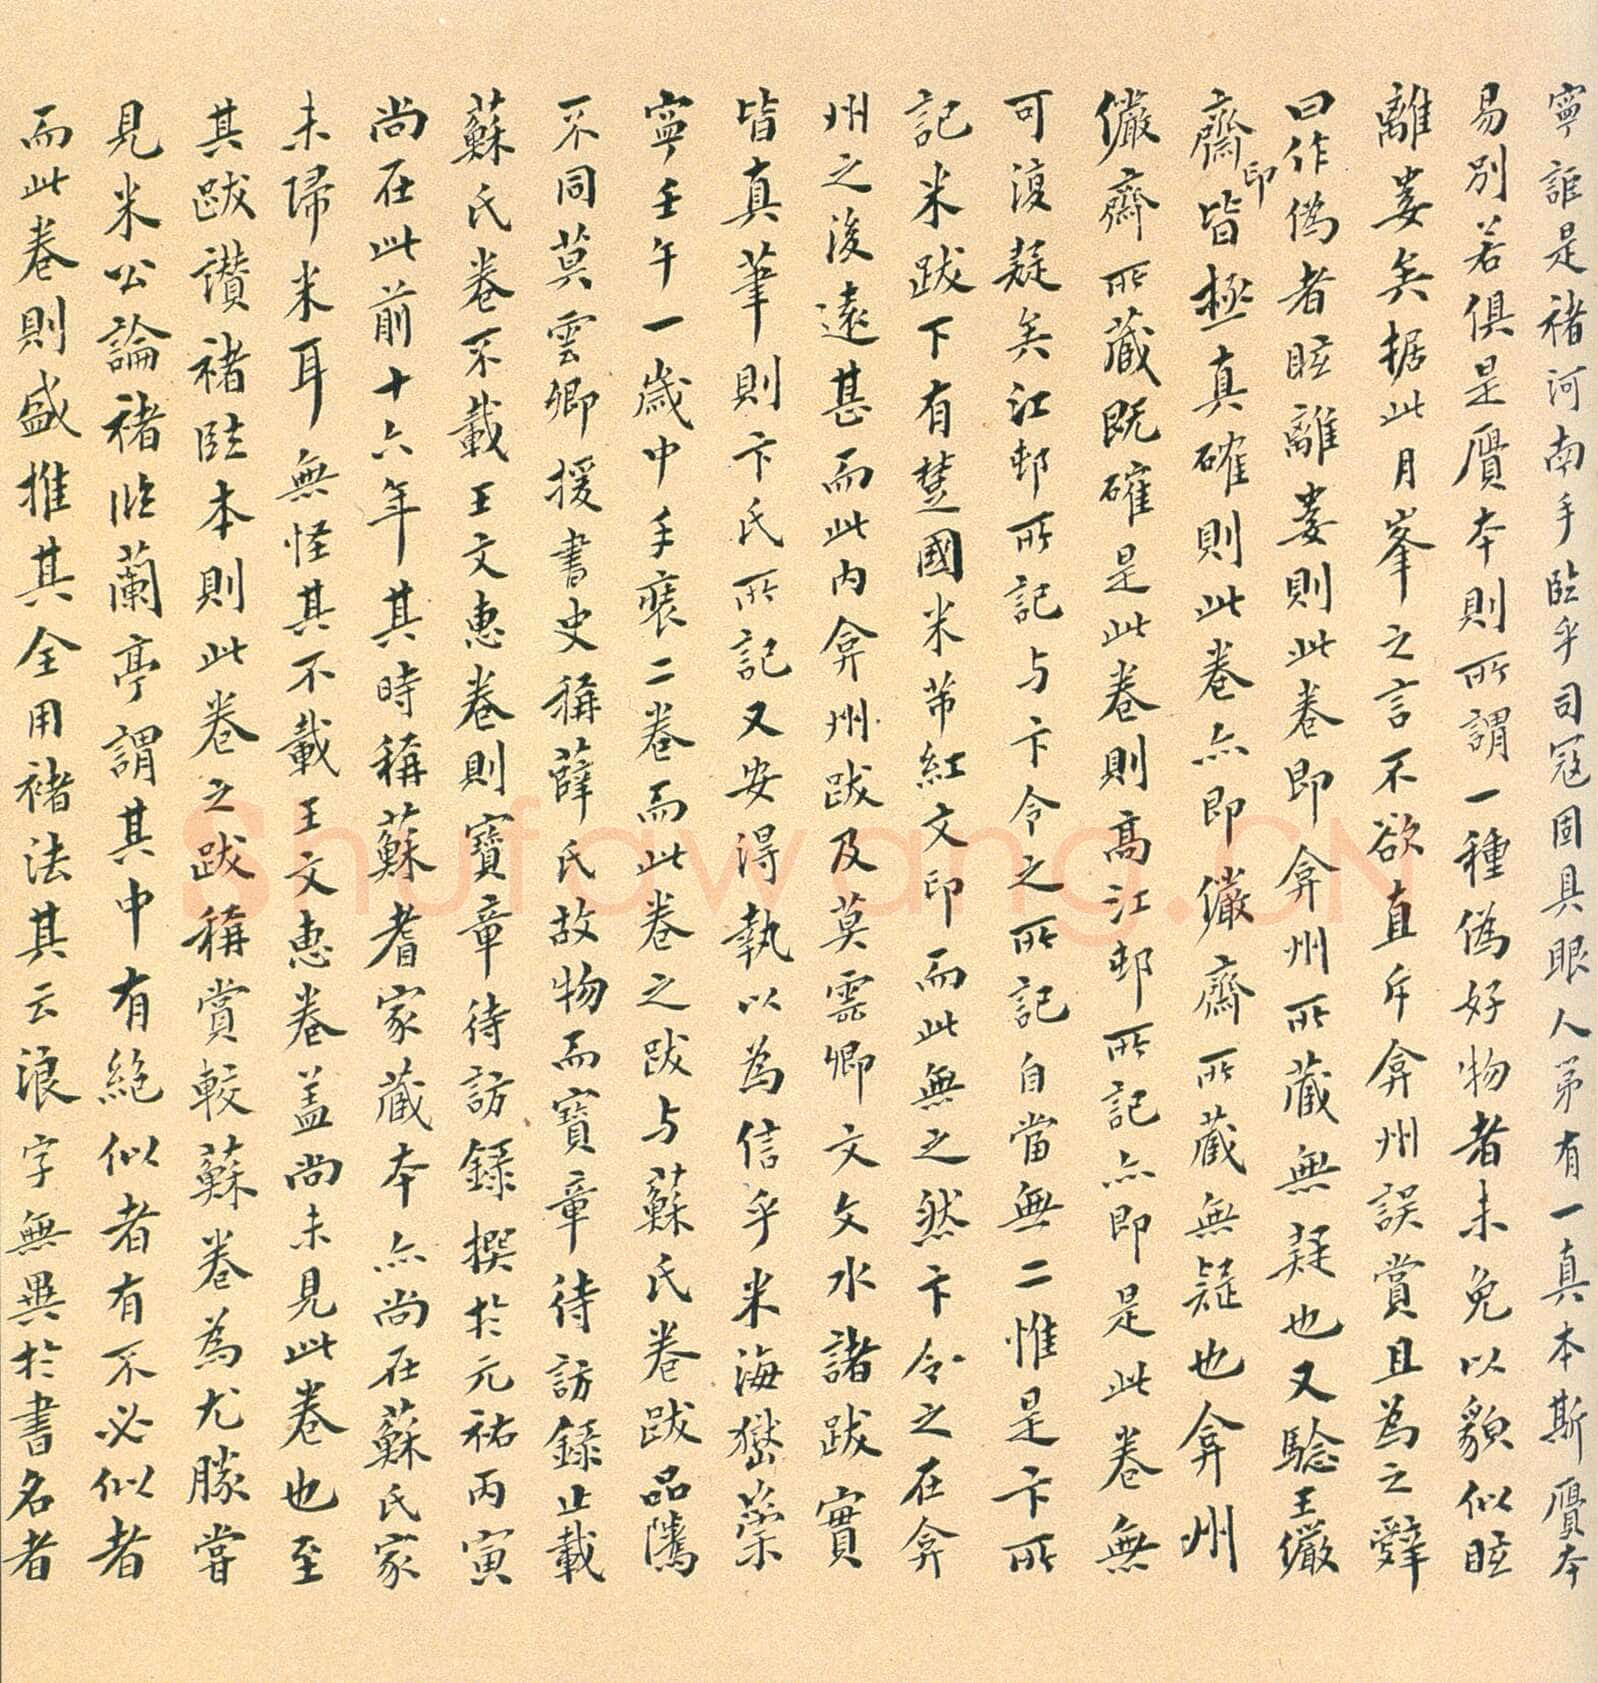 寧誰是褚河南手臨乎司寇固具眼人苐有一真本斯贋本
易別若俱是贋本則所謂一種偽好物者未免以貌似眩
離婁矣据此月峯之言不欲直斥弇州誤賞且為之辭
曰作偽者眩離婁則此卷即弇州所藏無疑也又騐王儼
齋印皆極真確則此卷亦即儼齋所藏無疑也弇州
儼齋所藏既確是此卷則高江邨所記亦即是此卷無
可復疑矣江邨所記与卞令之所記自當無二惟是卞所
記米跋下有楚國米芾紅文印而此無之然卞令之在弇
州之後遠甚而此內弇州跋及莫雲卿文文水諸跋實
皆真筆則卞氏所記又安得執以為信乎米海嶽崇
寧壬午一歲中手裝二卷而此卷之跋与蘇氏卷跋品隲
不同莫雲卿援書史稱薛氏故物而寶章待訪錄止載
蘇氏卷不載王文惠卷則寶章待訪錄撰於元祐丙寅
尚在此前十六年其時稱蘇耆家藏本亦尚在蘇氏家
未歸米耳無怪其不載王文惠卷盖尚未見此卷也至
其跋讚褚臨本則此卷之跋稱賞較蘇卷為尤勝嘗
見米公論褚臨蘭亭謂其中有絕似者有不必似者
而此卷則盛推其全用褚法其云浪字無異於書名者
Shufawang.CN